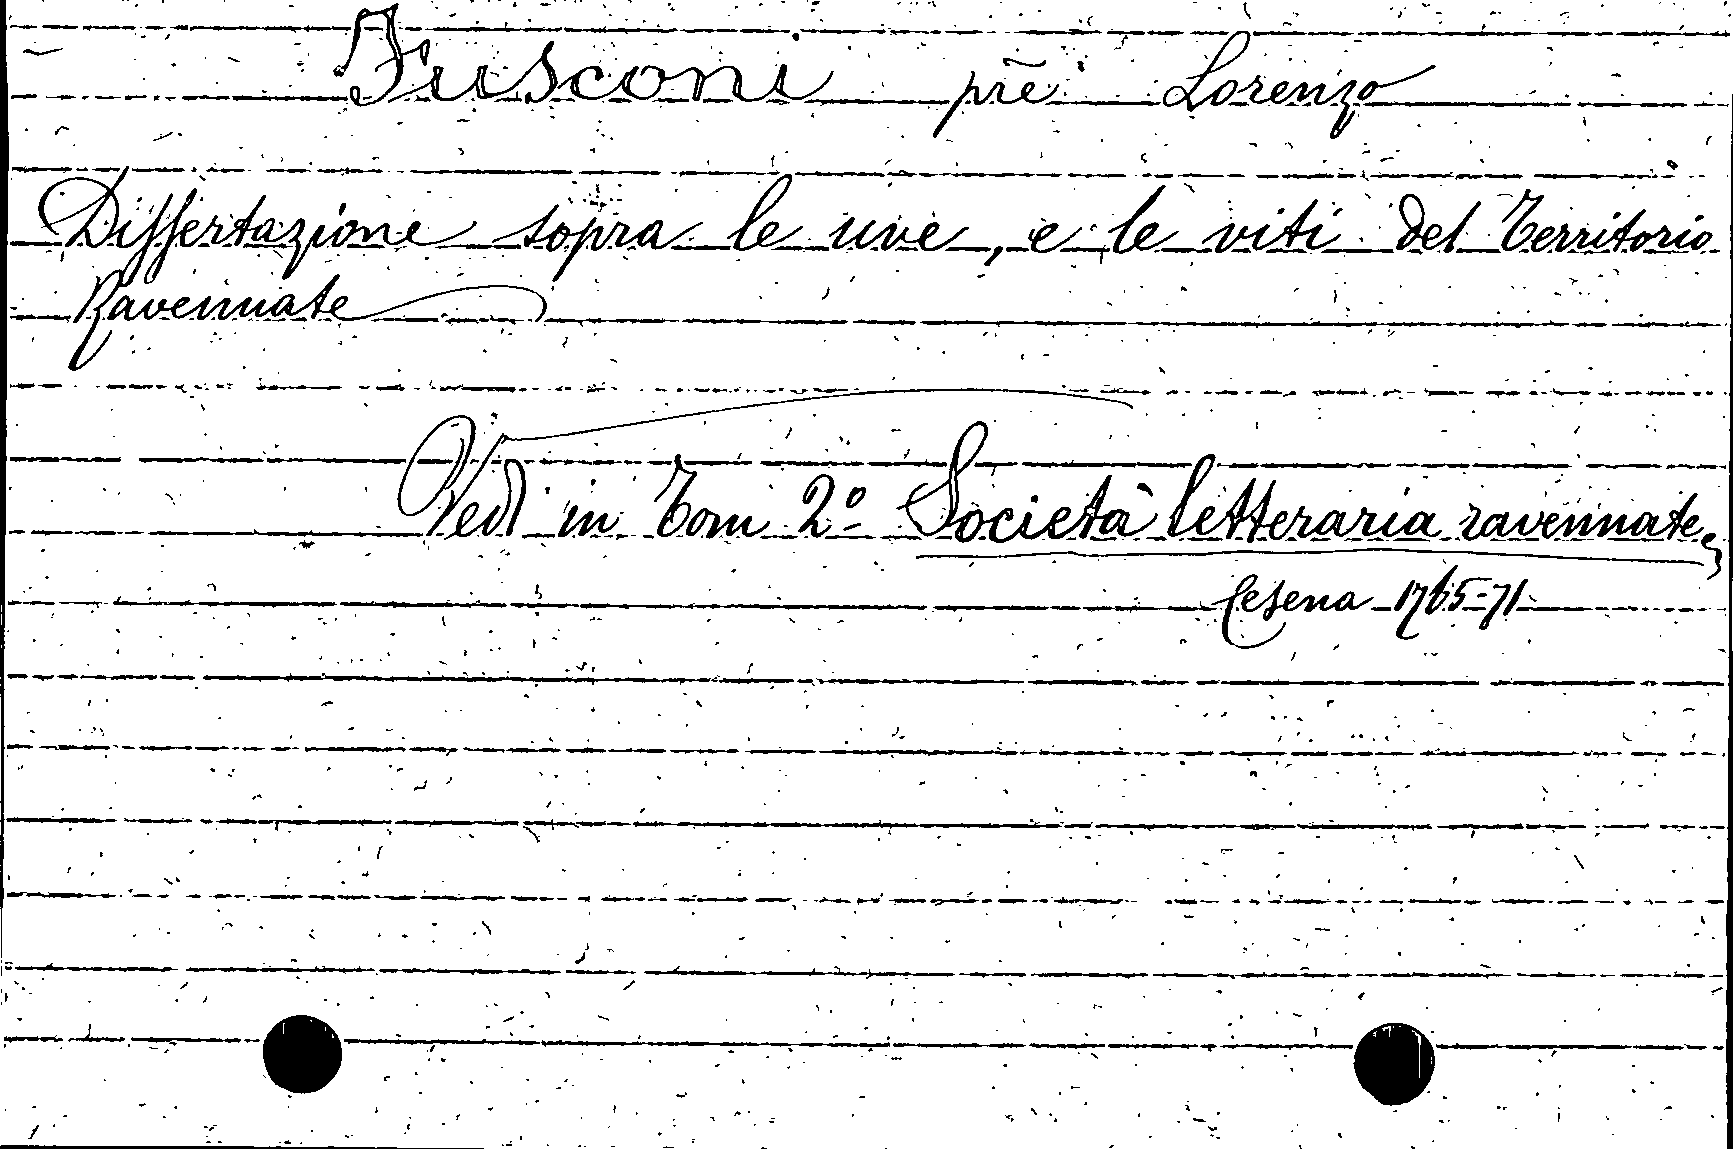 Fusconi prē Lorenzo
Dissertazione sopra le uve, e le viti del Territorio
Ravennate
Vedi in Tom 2º Società letteraria ravennate
Cesena 1765-71